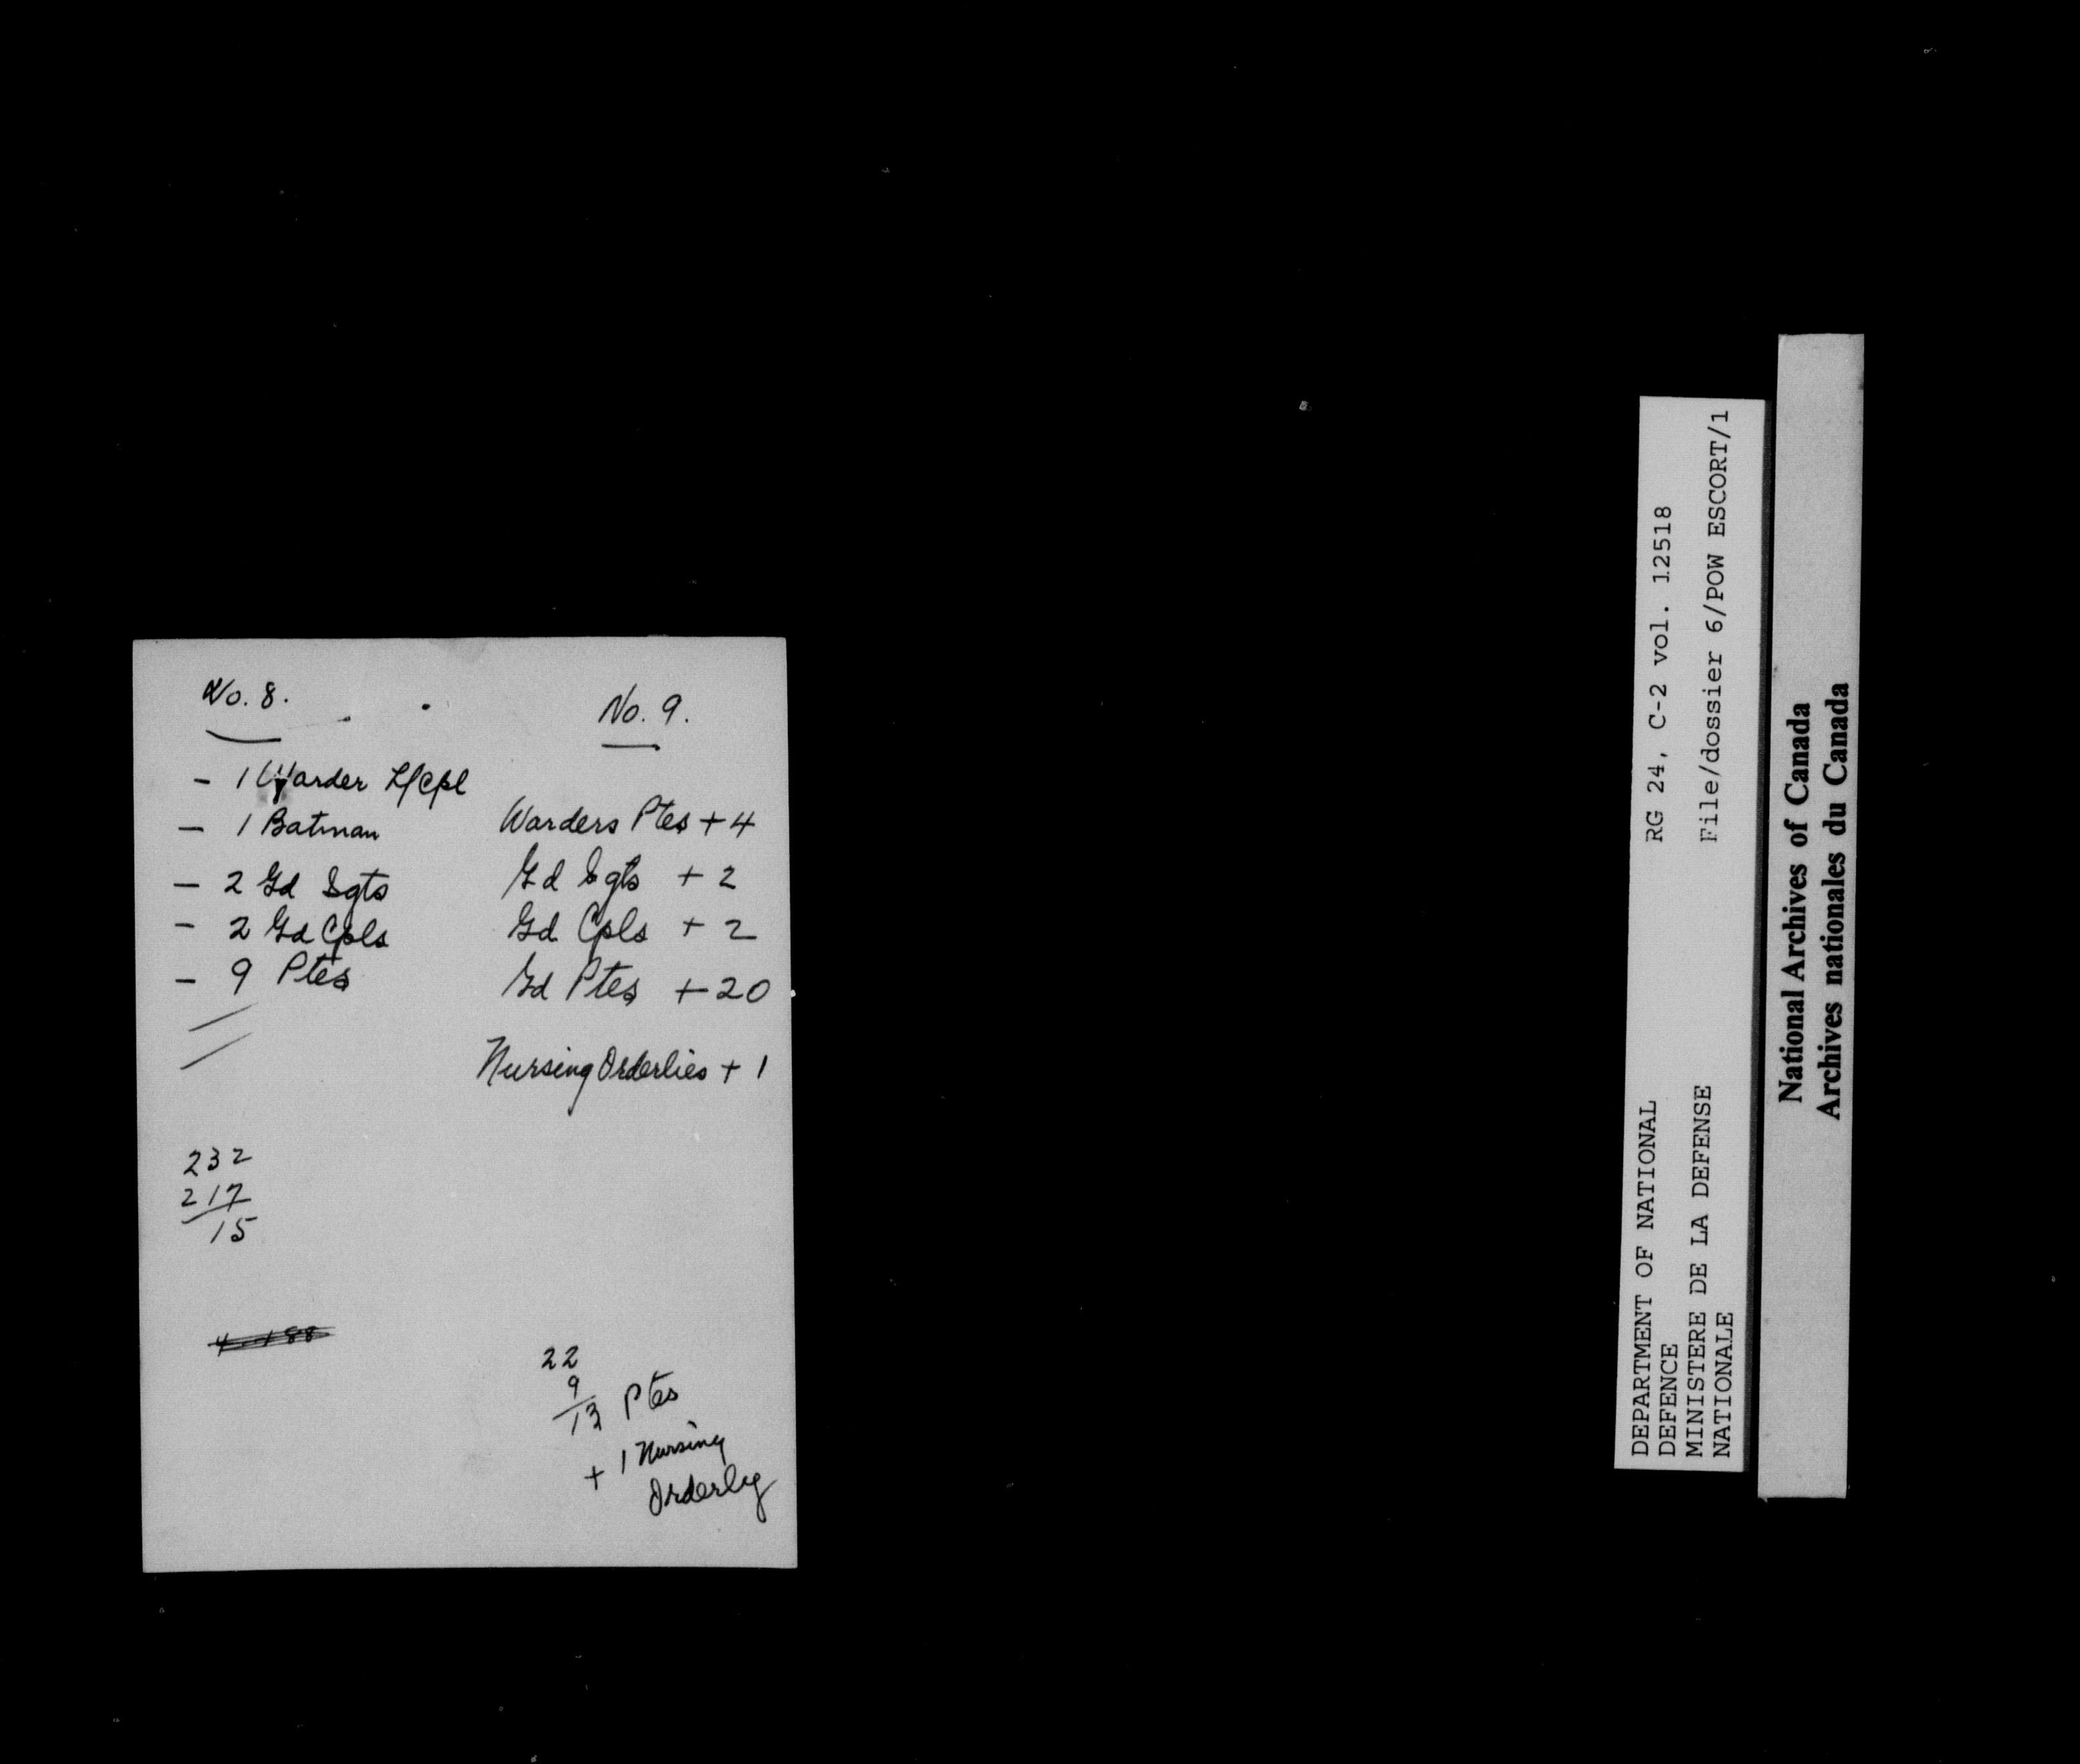 No. 8.
- 1 Warder L/Cpl
- 1 Batman
- 2 Gd Sgts
- 2 Gd Cpls
- 9 Ptes
232
217
15
No. 9.
Warders Ptes + 4
Gd Sgts + 2
Gd Cpls + 2
Gd Ptes + 20
Nursing Orderlies + 1
22
9
13 Ptes
+ 1 Nursing
Orderly
RG 24, C-2 vol. 12518
File/dossier 6/POW ESCORT/1
DEPARTMENT OF NATIONAL
DEFENCE
MINISTERE DE LA DEFENSE
NATIONALE
National Archives of Canada
Archives nationales du Canada